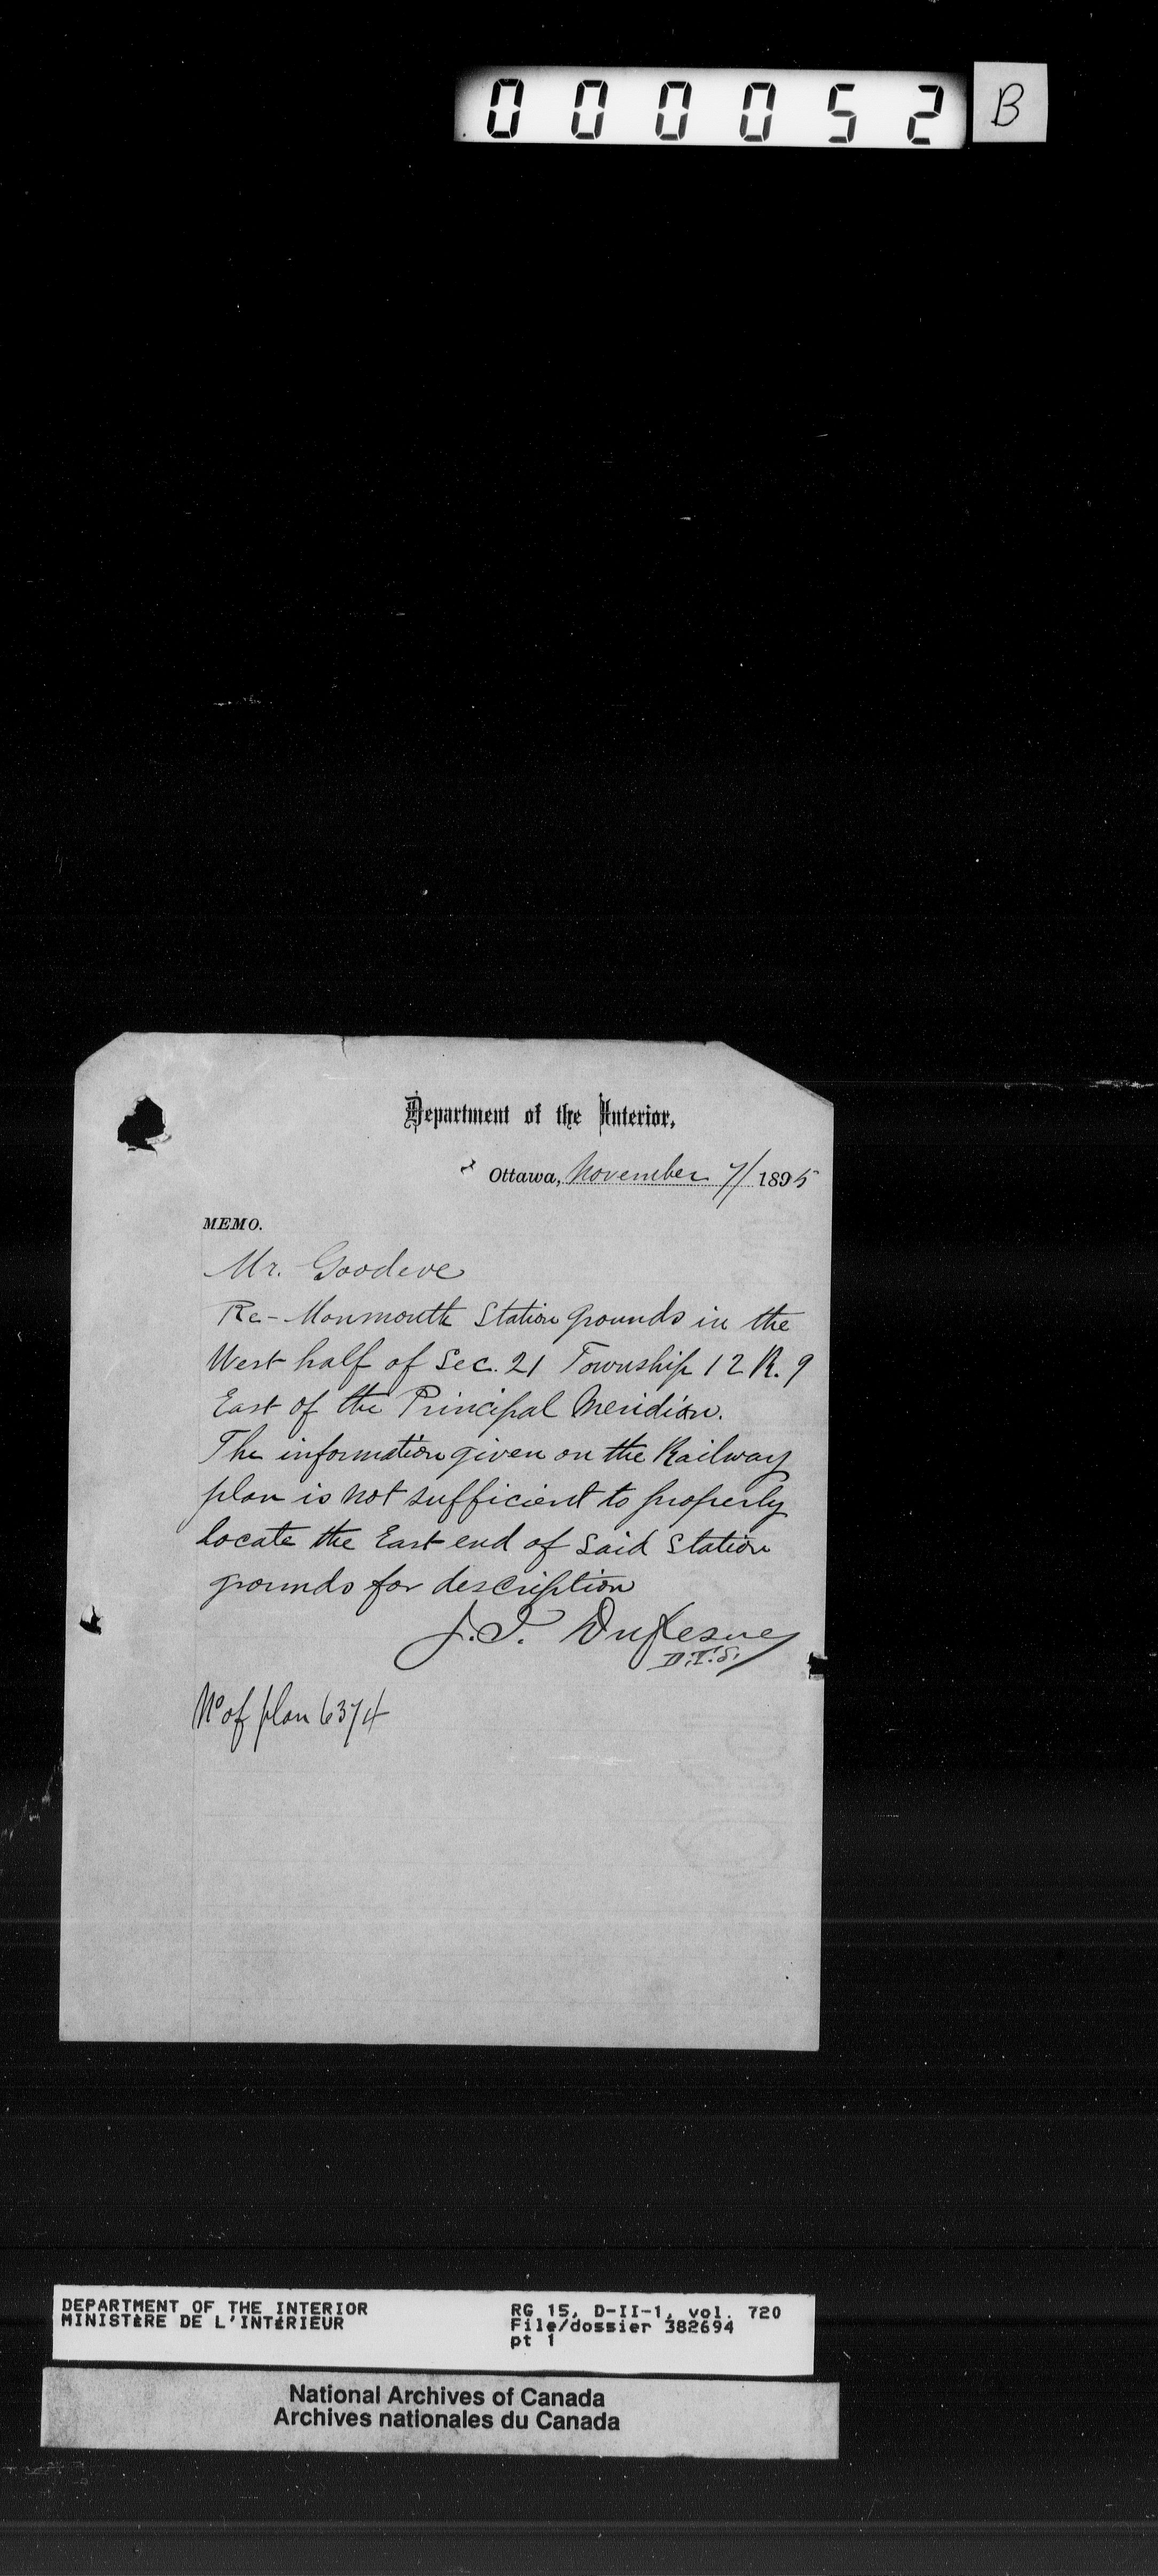 000052 B
Department of the Interior,
Ottawa, November 7/ 1895
MEMO.
Mr. Goodeve
Re- Monmouth Station grounds in the
West half of Sec. 21 Township 12 R. 9
East of the Principal Meridian.
The information given on the Railway
plan is not sufficient to properly
locate the East end of said Station
grounds for description
J.I. Dufresne
D.T.S.
No of plan 6374
DEPARTMENT OF THE INTERIOR
MINISTÈRE DE L'INTÉRIEUR
RG 15, D-II-1, vol. 720
File/dossier 382694
pt 1
National Archives of Canada
Archives nationales du Canada